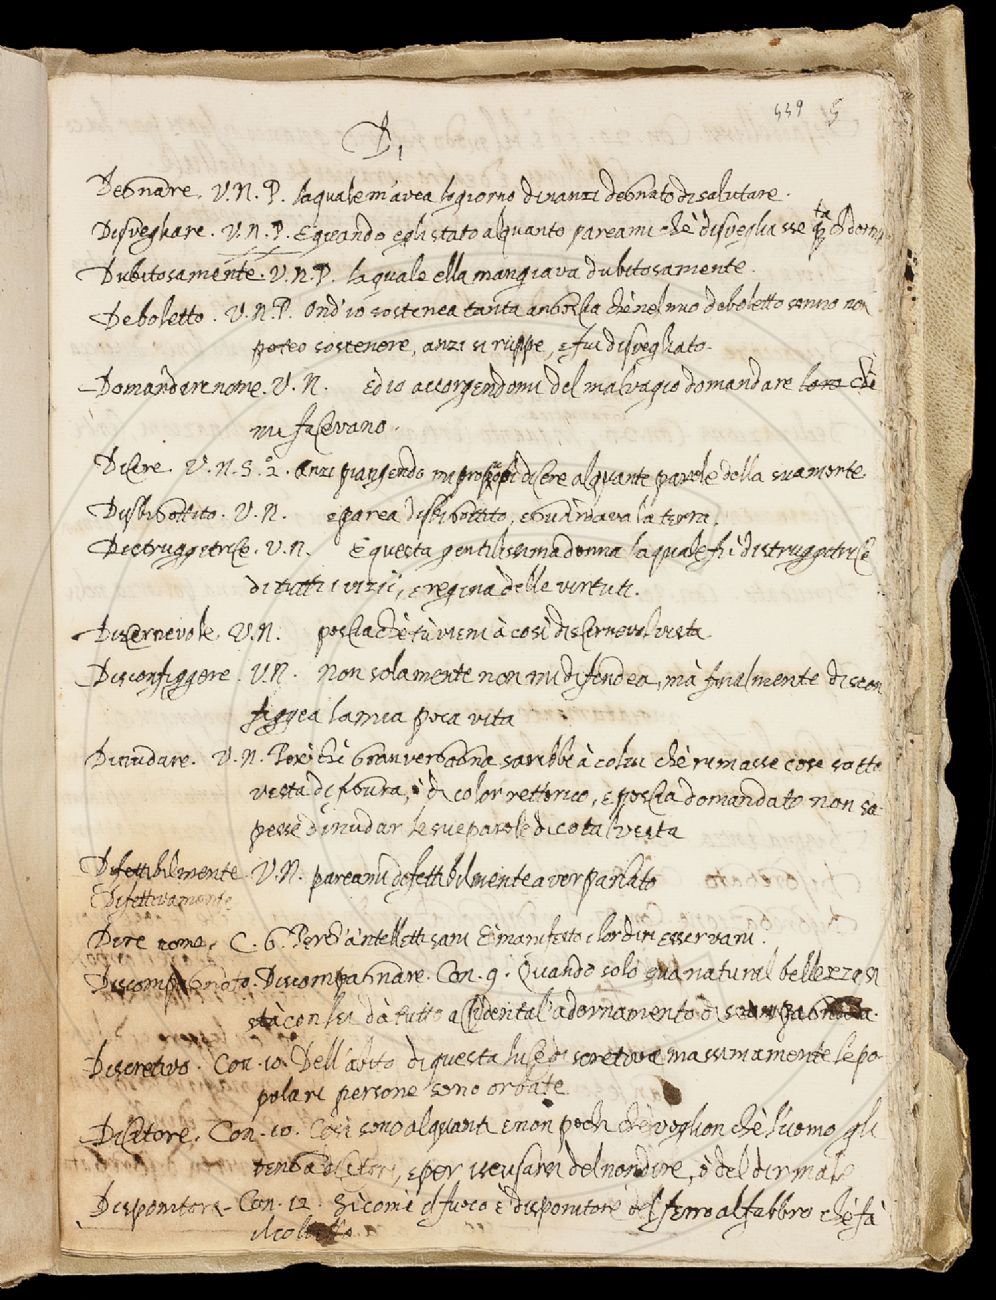 339 5
D,
Degnare. V.N.P. la quale m'avea lo giorno dinanzi degnato di salutare.
Disvegliare. V.N.P. E quando egli stato alquanto pareami chè disvegliasse ta q̃ ch dormia
Dubitosamente. V.N.P. la quale ella mangiava dubitosamente.
Deboletto. V.N.P. Ond'io sostenea tanta angoscia chè nel mio deboletto sonno non
poteo sostenere, anzi si ruppe, e fui disvegliato.
Domandare nome. V.N. Ed io accorgendomi del malvagio domandare loro chè
mi facevano.
Dicere. V.N.S.2. anzi piangendo mi proposi di dicere alquante parole della sua morte
Disbigottito. V.N. e parea disbigottito, e guardava la terra.
Distruggitrice. V.N. E questa gentilissima donna la quale fu distruggitrice
di tutti i vizii, e regina delle virtuti.
Discernevole. V.N. poscia chè tù vieni à così discernevol vista
Disconfiggere. V.N. Non solamente non mi difendea, mà finalmente discon
figgea la mia poca vita
Dinudare. V.N. Però chè gran vergogna sarebbe à colui chè rimasse cose sotto
vesta di figura, ò di color rettorico, e poscia domandato non sa
pesse dinudar le sue parole di cotal vesta
Difettibilmente. V.N. pareami difettibilmente aver parlato
Difettivamente
Dire nome. C. 6. Perch'a'ntelletti sani è manifesto i lor diri esser vani.
Discompagnato. Discompagnare. Con. 9. Quando solo sua natural bellezza si
stà con lei dà tutto accidental'adornamento
Discretivo. Con. 10. Dell'abito di questa luce discretiva massimamente le po-
polari persone sono orbate
Dicitore. Con. 10. Così sono alquanti e non pochi chè voglion chè l'uomo gli
tenga dicitori, e per iscusarsi del non dire, ò del dir male
Dispositore. Con. 12. Sì com'è il fuoco è dispositore del ferro al fabbro chè fà
il coltello.